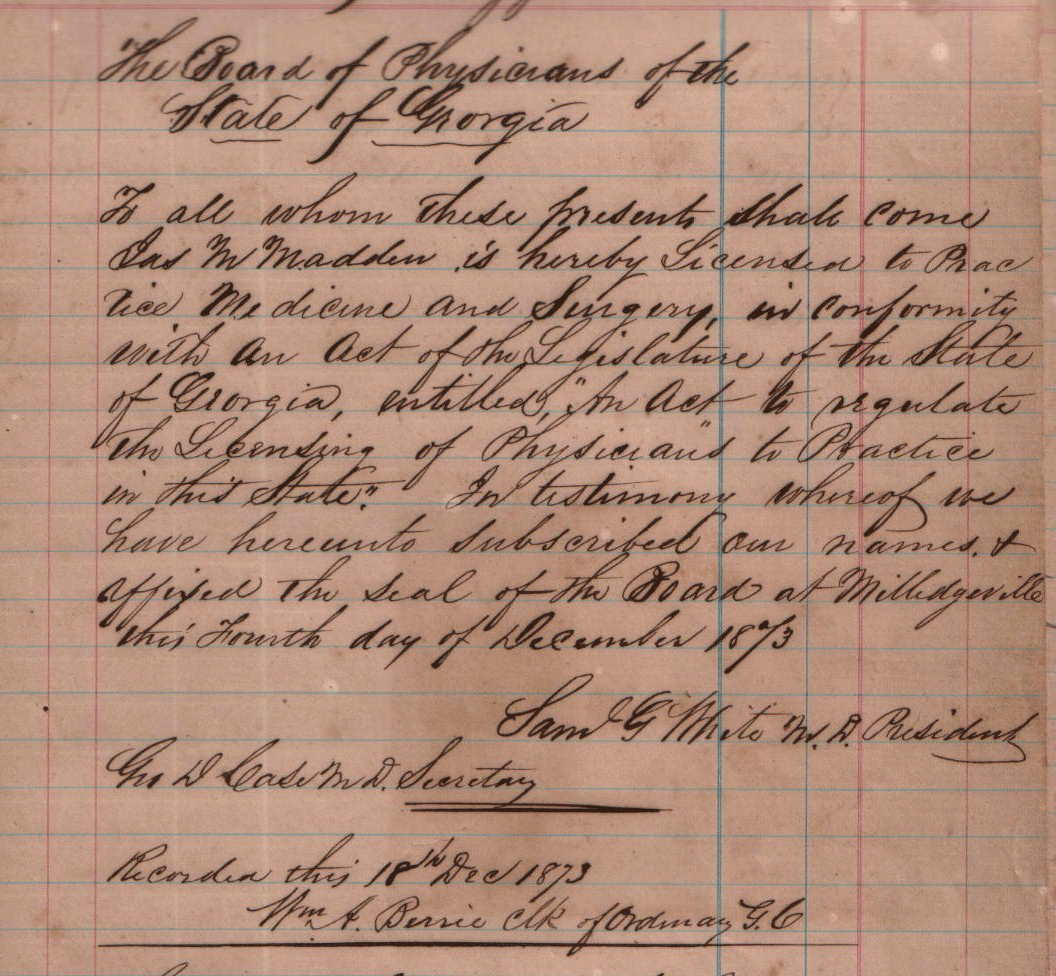 The Board of Physicians of the
State of Georgia
To all whom these presents shall come
Jas M Madden is hereby Licensed to Prac
tice Medicine and Surgery, in conformity
with an Act of the Legislature of the State
of Georgia, entitled, "An Act to regulate
the Licensing of Physician's to Practice
in this State." In testimony whereof we
have hereunto subscribed our names, &
affixed the seal of the Board at Milledgeville
this Fourth day of December 1873
Saml G White M. D. President
Geo D Case M D. Secretay
Recorded this 18th Dec 1873
Wm A. Berrie Clk of Ordinary G. C